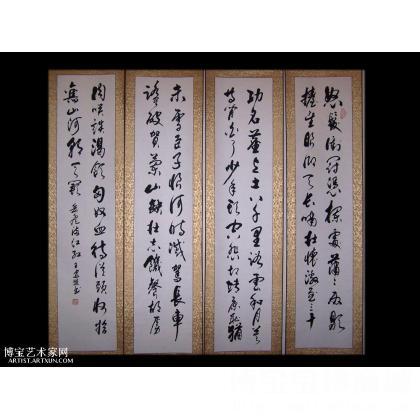 怒髮衝冠憑欄處瀟瀟雨歇
抬望眼仰天長嘯壯懷激烈三十
功名塵與土八千里路雲和月莫
等閒白了少年頭空悲切靖康恥猶
未雪臣子恨何時滅駕長車
踏破賀蘭山缺壯志饑餐胡虜
肉笑談渴飲匈奴血待從頭收拾
舊山河朝天闕 岳飛滿江紅
博宝艺术家网
ARTIST.ARTXUN.COM